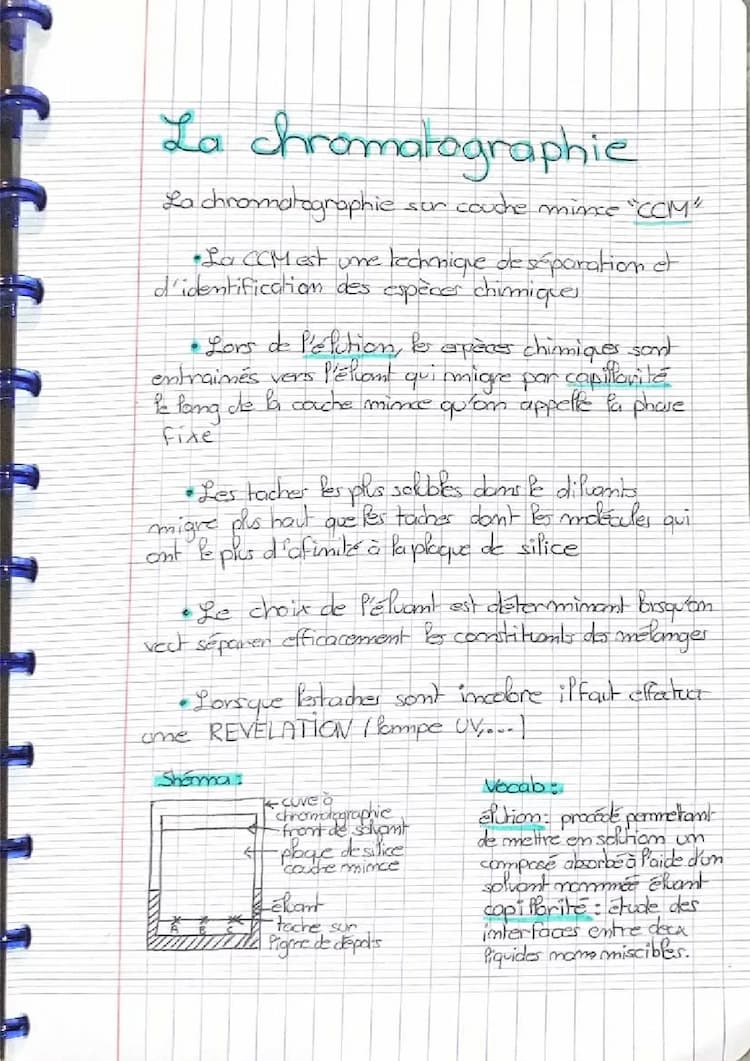 La chromatographie
La chromatographie sur couche mince "CCM"
• La CCM est une technique de séparation et
d'identification des espèces chimiques
• Lors de l'élution, les espèces chimiques sont
entrainés vers l'éluant qui migre par capillarité
le long de la couche mince qu'on appelle la phase
fixe
• Les taches les plus solubles dans le diluants
migre plus haut que les taches dont les molécules qui
ont le plus d'afimité à la plaque de silice
• Le choix de l'éluant est déterminant lorsqu'on
veut séparer efficacement les constituants des mélanges
• Lorsque les taches sont incolore il faut effectuer
une REVELATION (lampe UV,...)
Shéma :
cuve à
chromatographie
front de solvant
plaque de silice
couche mince
éluant
tache sur
ligne de dépots
A B C
Vocab :
élution : procédé permettant
de mettre en solution un
composé absorbé à l'aide d'un
solvant nommée éluant
capillarité : étude des
interfaces entre deux
liquides non miscibles.